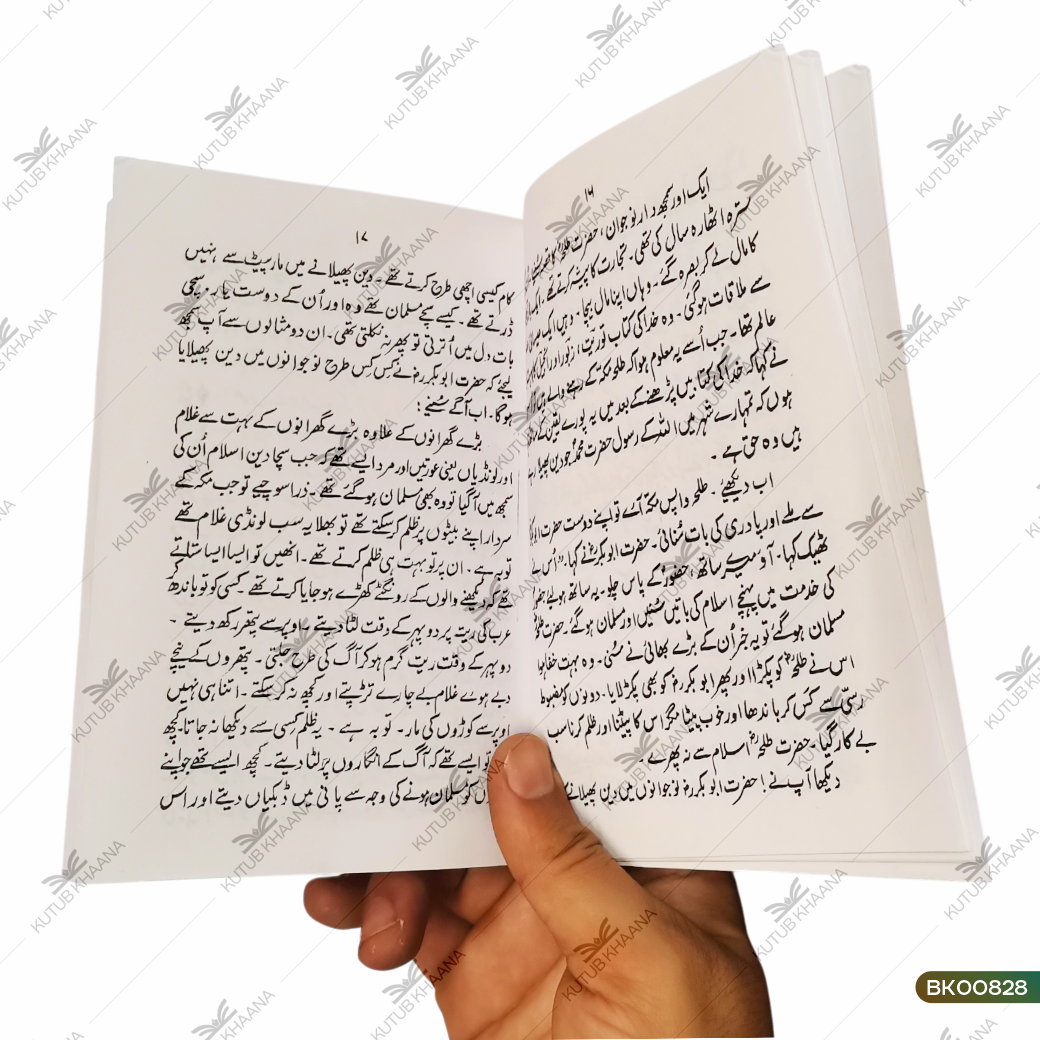 ۱۶
ایک اور سمجھ دار نوجوان، حضرت طلحہؓ کا قصہ سنیے
سترہ اٹھارہ سال کی تھی۔ تجارت کا پیشہ کرتے تھے۔ ایک
کا مال لے کر بصرہ گئے۔ وہاں اپنا مال بیچا۔ وہیں ایک
سے ملاقات ہوگئی۔ وہ خدا کی کتاب توریت، زبور اور انجیل کا
عالم تھا۔ جب اُسے یہ معلوم ہوا کہ طلحہ مکہ کے رہنے والے ہیں تو اس
نے کہا کہ خدا کی کتابیں پڑھنے کے بعد میں یہ پورے یقین کے
ہوں کہ تمہارے شہر میں اللہ کے رسول حضرت محمدؐ جو دین پھیلا رہے
ہیں وہ حق ہے۔
اب دیکھیے۔ طلحہ واپس مکہ آئے تو اپنے دوست حضرت
سے ملے اور پادری کی بات سُنائی۔ حضرت ابوبکرؓ نے کہا، "اُس نے
ٹھیک کہا۔ آؤ میرے ساتھ، حضورؐ کے پاس چلو۔ یہ ساتھ ہو لیے
کی خدمت میں پہنچے اسلام کی باتیں سُنیں اور مسلمان ہوگئے۔ حضرت طلحہؓ
مسلمان ہوگئے تو یہ خبر اُن کے بڑے بھائی نے سُنی۔ وہ بہت خفا ہوا
اس نے طلحہؓ کو پکڑا اور پھر ابوبکرؓ کو بھی پکڑ لایا۔ دونوں کو مضبوط
رسّی سے کَس کر باندھا اور خوب پیٹا مگر اس کا پیٹنا اور ظلم کرنا سب
بے کار گیا۔ حضرت طلحہؓ اسلام سے نہ پھرے۔
دیکھا آپ نے! حضرت ابوبکرؓ نوجوانوں میں دین پھیلانے
۱۷
کام کیسی اچھی طرح کرتے تھے۔ دین پھیلانے میں مارپیٹ سے نہیں
ڈرتے تھے۔ کیسے سچّے مسلمان تھے وہ اور اُن کے دوست یار۔ سچّی
بات دل میں اُترتی تو پھر نہ نکلتی تھی۔ ان دو مثالوں سے آپ سمجھ
لیجئے کہ حضرت ابوبکرؓ نے کِس کِس طرح نوجوانوں میں دین پھیلایا
ہوگا۔ اب آگے سُنیے:
بڑے گھرانوں کے علاوہ بڑے گھرانوں کے بہت سے غلام
اور لونڈیاں یعنی عورتیں اور مرد ایسے تھے کہ جب سچا دین اسلام اُن کی
سمجھ میں آگیا تو وہ بھی مسلمان ہوگئے تھے۔ ذرا سوچیے تو جب مکہ کے
سردار اپنے بیٹوں پر ظلم کرسکتے تھے تو بھلا یہ سب لونڈی غلام تھے
توبہ ہے۔ ان پر تو بہت ہی ظلم کرتے تھے۔ انھیں تو ایسا ایسا ستاتے
تھے کہ دیکھنے والوں کے رونگٹے کھڑے ہوجایا کرتے تھے۔ کسی کو تو باندھ کر
عرب کی ریت پر دوپہر کے وقت لٹا دیتے۔ اوپر سے پتھر رکھ دیتے۔
دوپہر کے وقت ریت گرم ہوکر آگ کی طرح جلتی۔ پتھروں کے نیچے
دبے ہوئے غلام بے چارے تڑپتے اور کچھ نہ کرسکتے۔ اتنا ہی نہیں
اوپر سے کوڑوں کی مار۔ توبہ ہے۔ یہ ظلم کسی سے دیکھا نہ جاتا۔ کچھ
تو ایسے تھے کہ آگ کے انگاروں پر لٹا دیتے۔ کچھ ایسے تھے جو اپنے
کو مسلمان ہونے کی وجہ سے پانی میں ڈبکیاں دیتے اور اس
BK00828